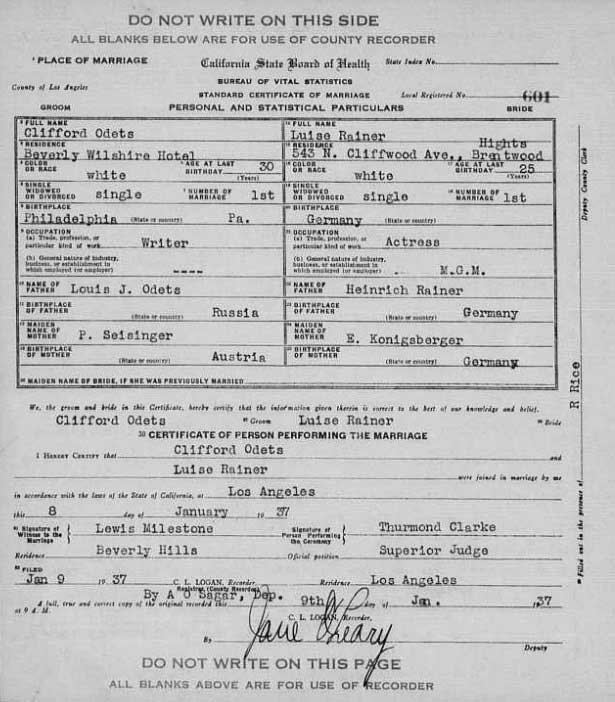 DO NOT WRITE ON THIS SIDE
ALL BLANKS BELOW ARE FOR USE OF COUNTY RECORDER
PLACE OF MARRIAGE California State Board of Health State Index No.
BUREAU OF VITAL STATISTICS
County of Los Angeles STANDARD CERTIFICATE OF MARRIAGE Local Registered No. 601
GROOM PERSONAL AND STATISTICAL PARTICULARS BRIDE
FULL NAME Clifford Odets FULL NAME Luise Rainer
RESIDENCE Beverly Wilshire Hotel RESIDENCE 543 N. Cliffwood Ave., Brentwood Hights
COLOR OR RACE white AGE AT LAST BIRTHDAY 30 (Years) COLOR OR RACE white AGE AT LAST BIRTHDAY 25 (Years)
SINGLE WIDOWED OR DIVORCED single NUMBER OF MARRIAGE 1st SINGLE WIDOWED OR DIVORCED single NUMBER OF MARRIAGE 1st
BIRTHPLACE Philadelphia (State or country) Pa. BIRTHPLACE Germany (State or country)
OCCUPATION OCCUPATION
(a) Trade, profession, or particular kind of work Writer (a) Trade, profession, or particular kind of work Actress
(b) General nature of industry, business, or establishment in which employed (or employer) ---- (b) General nature of industry, business, or establishment in which employed (or employer) M.G.M.
NAME OF FATHER Louis J. Odets NAME OF FATHER Heinrich Rainer
BIRTHPLACE OF FATHER (State or country) Russia BIRTHPLACE OF FATHER (State or country) Germany
MAIDEN NAME OF MOTHER P. Seisinger MAIDEN NAME OF MOTHER E. Konigsberger
BIRTHPLACE OF MOTHER (State or country) Austria BIRTHPLACE OF MOTHER (State or country) Germany
MAIDEN NAME OF BRIDE, IF SHE WAS PREVIOUSLY MARRIED
We, the groom and bride in this Certificate, hereby certify that the information given therein is correct to the best of our knowledge and belief.
Clifford Odets Groom Luise Rainer Bride
CERTIFICATE OF PERSON PERFORMING THE MARRIAGE
I HEREBY CERTIFY that Clifford Odets and
Luise Rainer were joined in marriage by me
in accordance with the laws of the State of California, at Los Angeles
this 8 day of January 1937
Signature of Witness to the Marriage Lewis Milestone Signature of Person Performing the Ceremony Thurmond Clarke
Residence Beverly Hills Official position Superior Judge
FILED
Jan 9 1937 C. L. LOGAN, Recorder Residence Los Angeles
Registrar (County Recorder)
By A O'Sagar, Dep.
A full, true and correct copy of the original recorded this 9th day of Jan. 1937
at 9 A.M. C. L. LOGAN, Recorder.
By Jane Deputy
DO NOT WRITE ON THIS PAGE
ALL BLANKS ABOVE ARE FOR USE OF RECORDER
Filled out in the presence of R Rice Deputy County Clerk